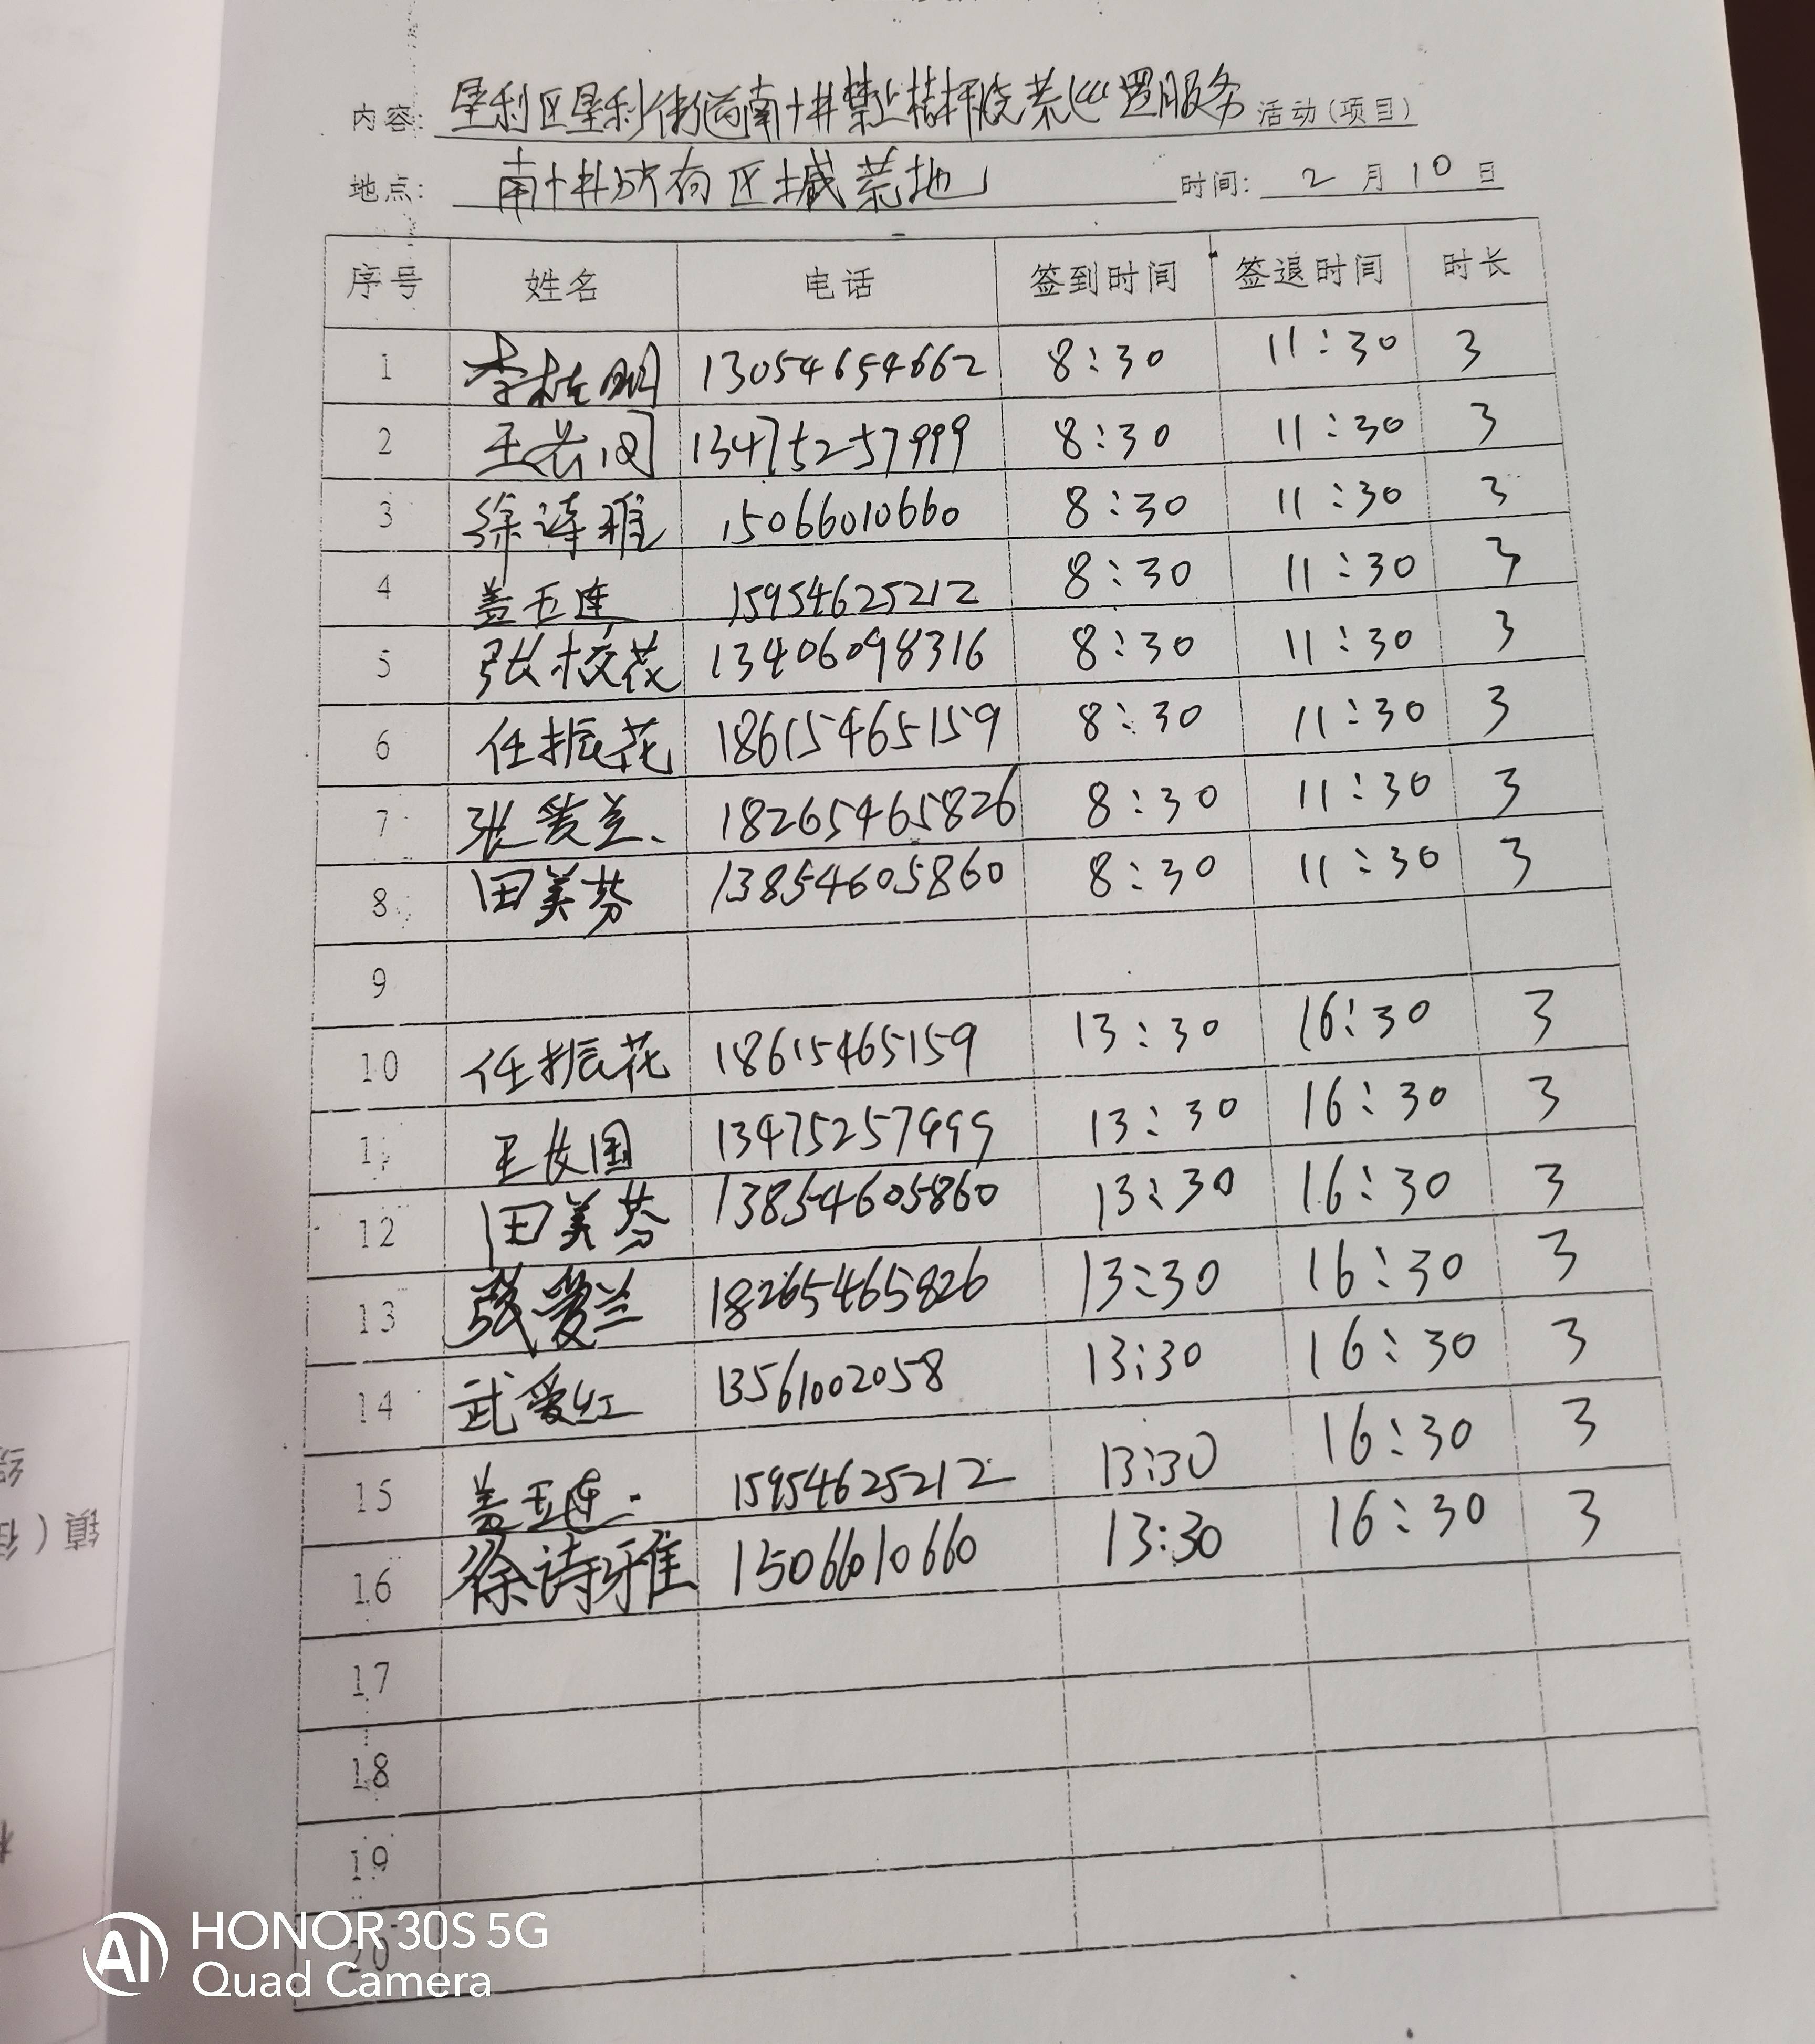 内容: 垦利区垦利街道南十井禁止秸秆烧荒 置服务 活动(项目)
地点: 南十井所有区域荒地 时间: 2 月 10 日
序号 姓名 电话 签到时间 签退时间 时长
1 李桂明 13054654662 8:30 11:30 3
2 13475257999 8:30 11:30 3
3 徐诗雅 15066010660 8:30 11:30 3
4 盖玉连 15954625212 8:30 11:30 3
5 张校花 13406098316 8:30 11:30 3
6 任振花 18615465159 8:30 11:30 3
7 张爱兰 18265465826 8:30 11:30 3
8 田美芬 13854605860 8:30 11:30 3
9
10 任振花 18615465159 13:30 16:30 3
11 王友国 13475257999 13:30 16:30 3
12 田美芬 13854605860 13:30 16:30 3
13 张爱兰 18265465826 13:30 16:30 3
14 武爱红 13561002058 13:30 16:30 3
15 盖玉连 15954625212 13:30 16:30 3
16 徐诗雅 15066010660 13:30 16:30 3
17
18
19
20
HONOR 30S 5G
Quad Camera
AI
镇(